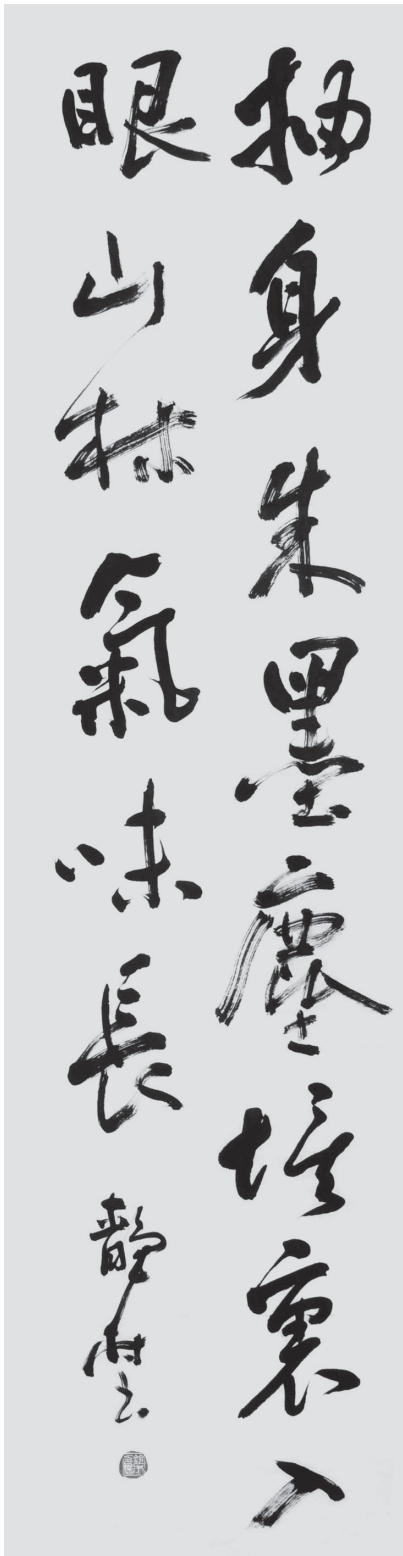 抽身朱墨塵埃裏入
眼山林氣味長
靜